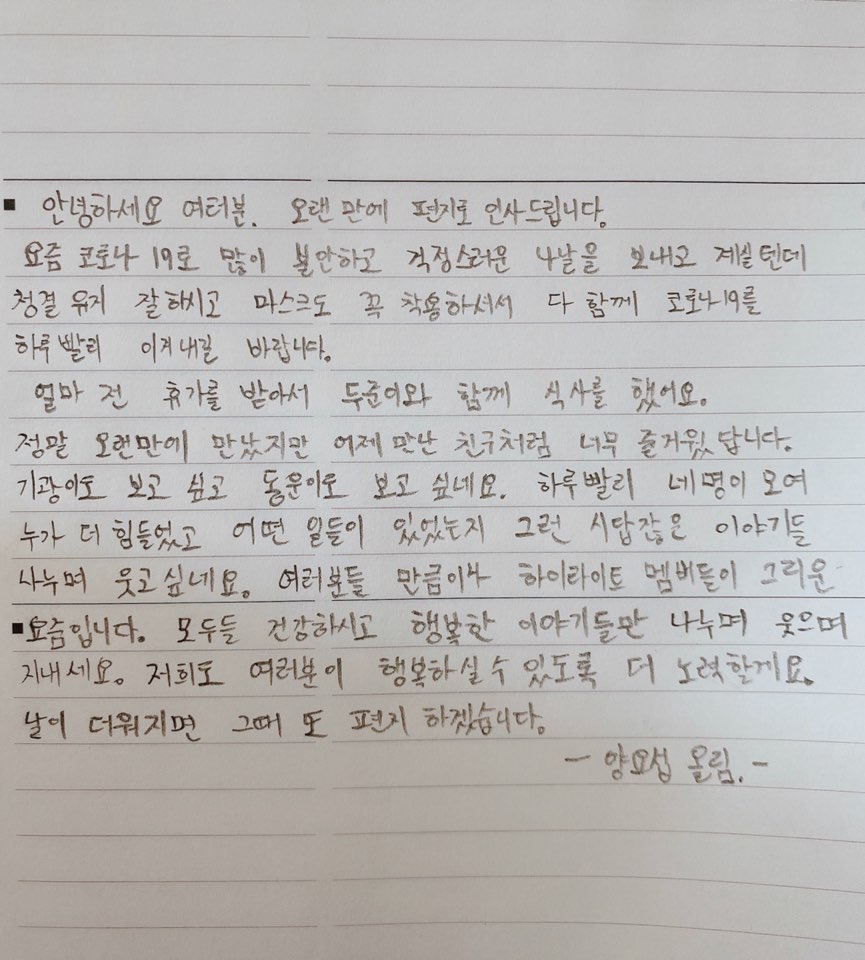 안녕하세요 여러분. 오랜 만에 편지로 인사드립니다.
요즘 코로나 19로 많이 불안하고 걱정스러운 나날을 보내고 계실텐데
청결 유지 잘 하시고 마스크도 꼭 착용하셔서 다 함께 코로나19를
하루 빨리 이겨내길 바랍니다.
얼마 전 휴가를 받아서 두준이와 함께 식사를 했어요.
정말 오랜만에 만났지만 어제 만난 친구처럼 너무 즐거웠답니다.
기광이도 보고 싶고 동운이도 보고 싶네요. 하루빨리 네명이 모여
누가 더 힘들었고 어떤 일들이 있었는지 그런 시답잖은 이야기들
나누며 웃고싶네요. 여러분들 만큼이나 하이라이트 멤버들이 그리운
요즘입니다. 모두들 건강하시고 행복한 이야기들만 나누며 웃으며
지내세요. 저희도 여러분이 행복하실 수 있도록 더 노력할게요.
날이 더워지면 그때 또 편지 하겠습니다.
- 양요섭 올림. -